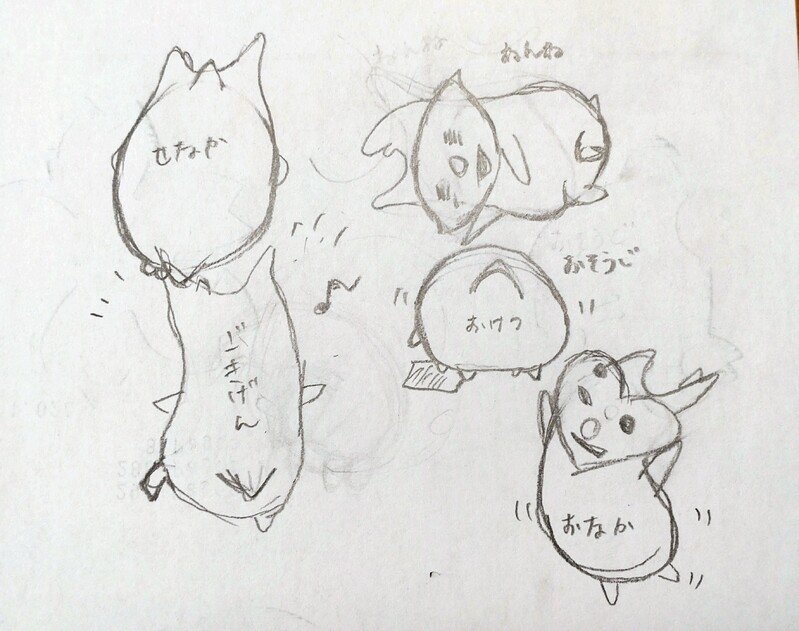 ねんね
せなか
おそうじ
ごきげん
おけつ
おなか